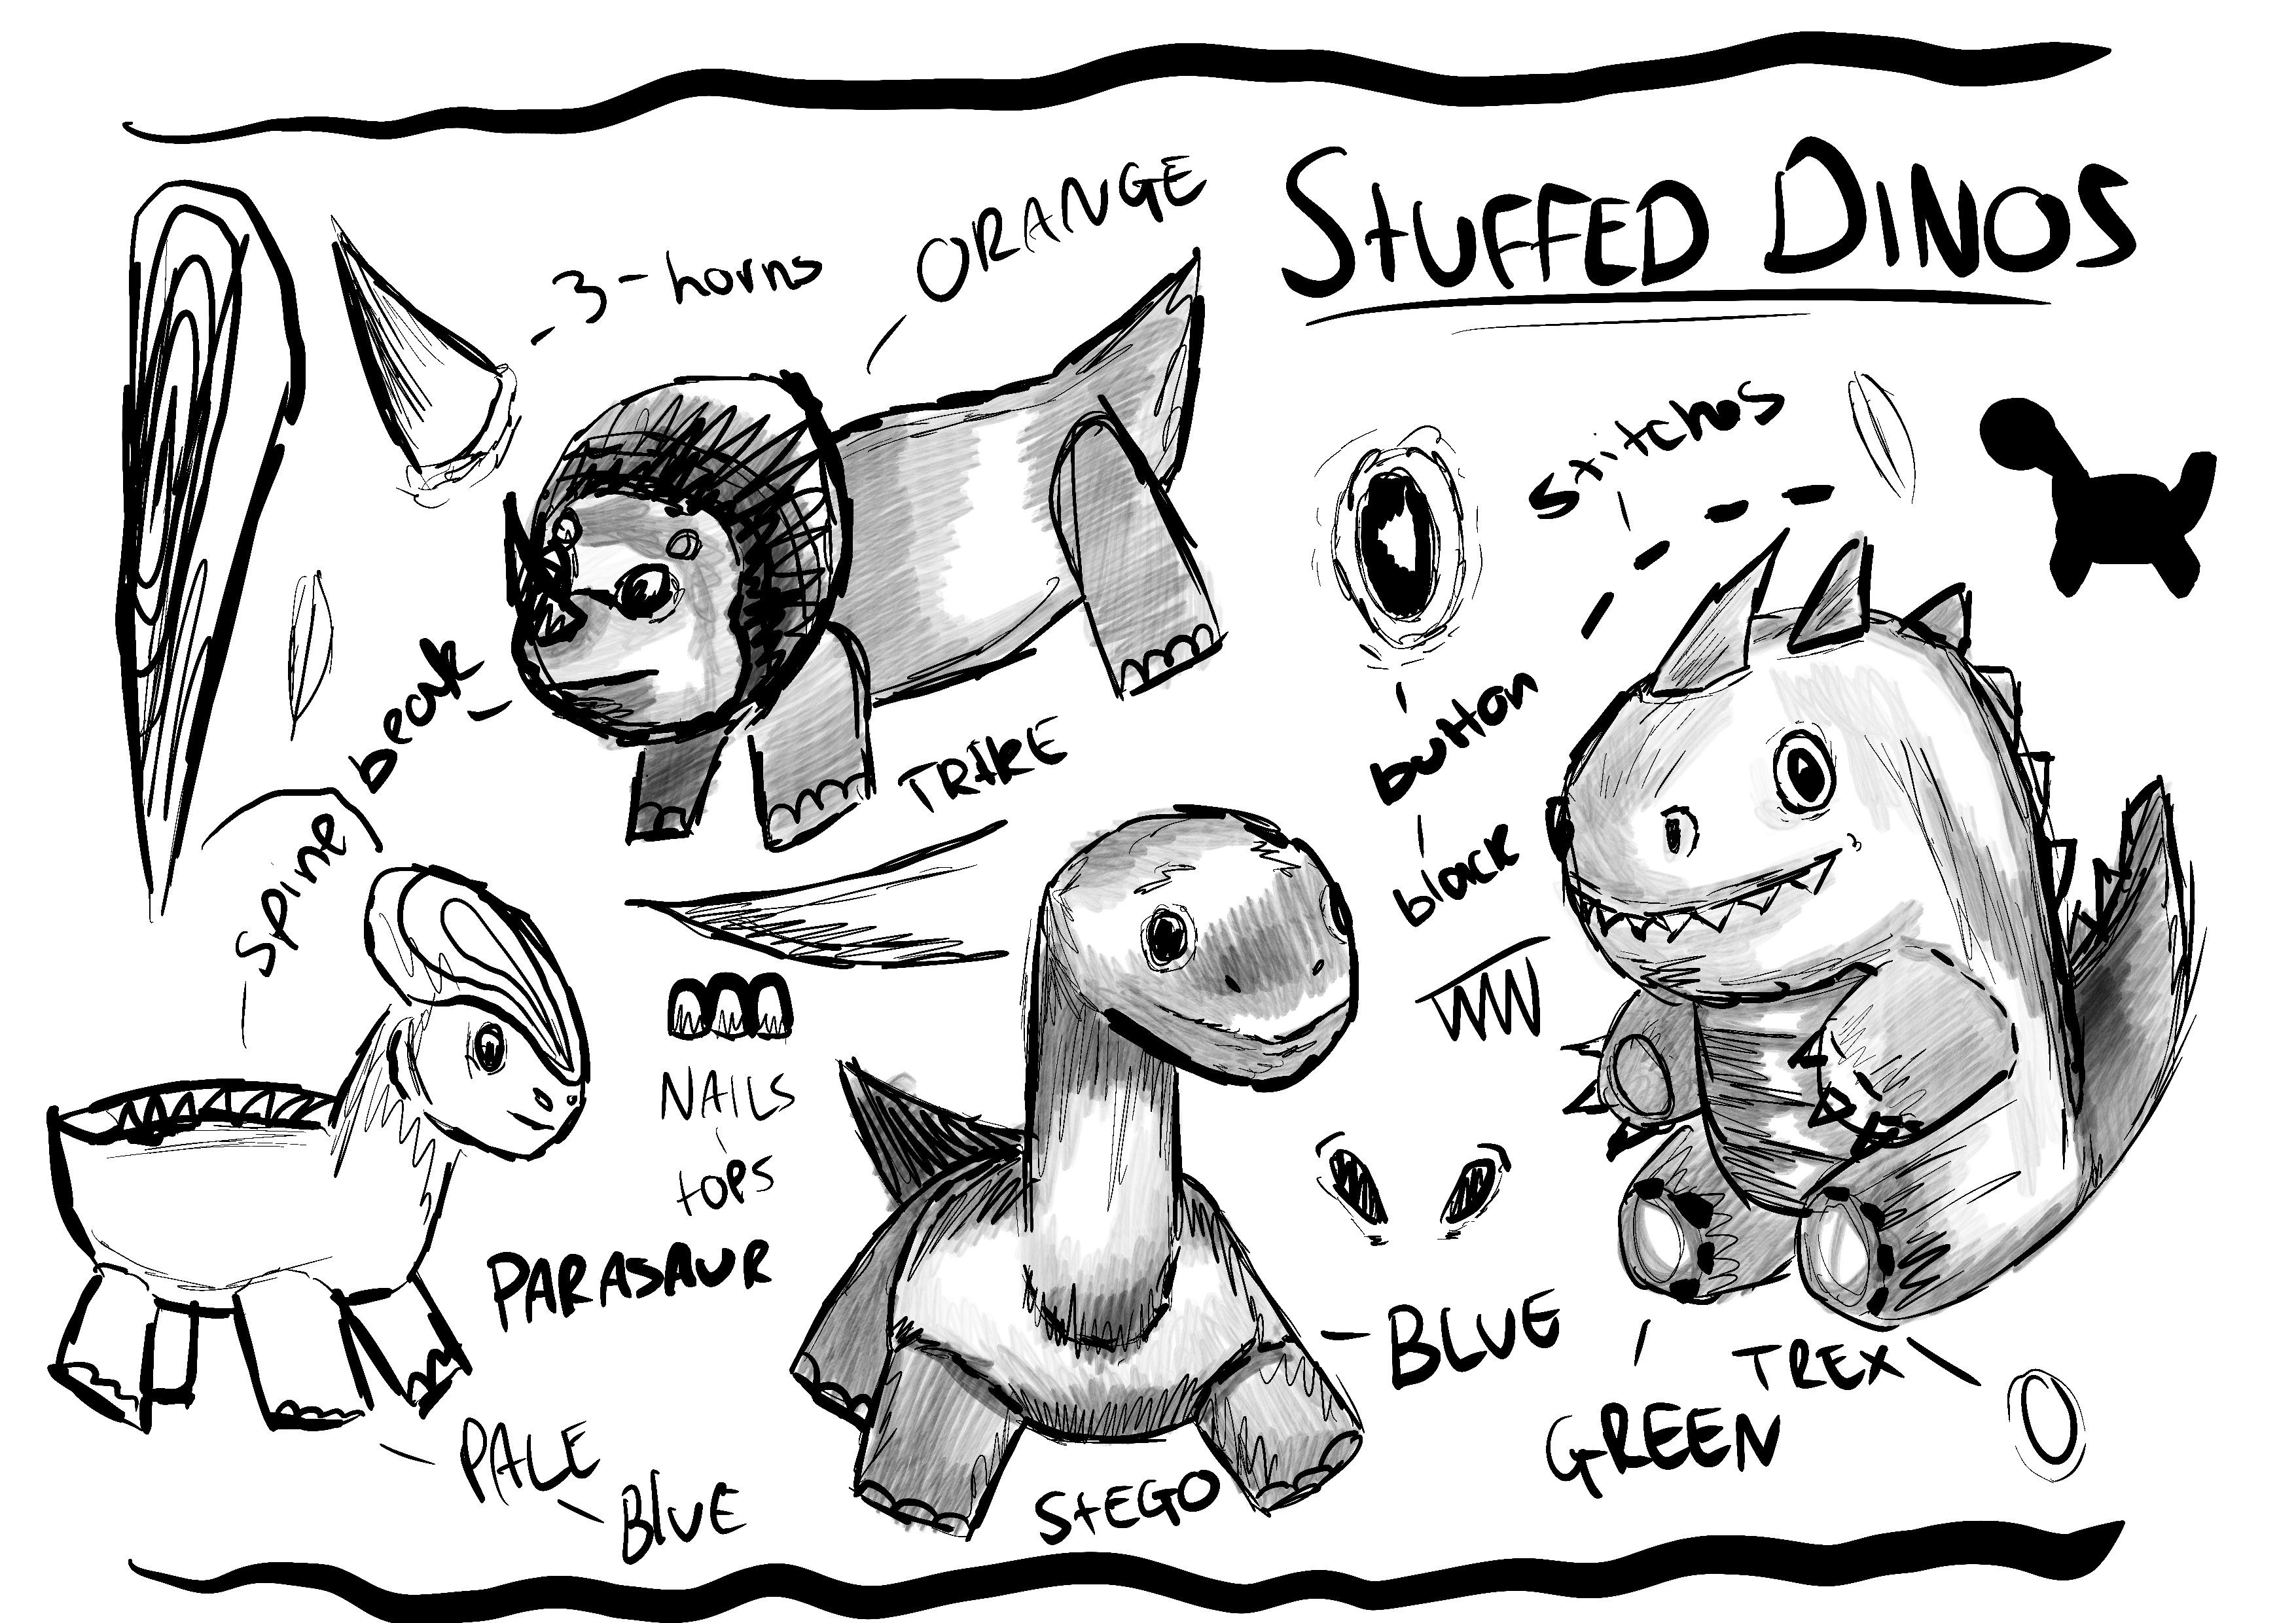 STUFFED DINOS
3-horns
ORANGE
stitches
beak
TRIKE
button
black
spine
NAILS
tops
PARASAUR
BLUE
TREX
GREEN
PALE
BLUE
STEGO